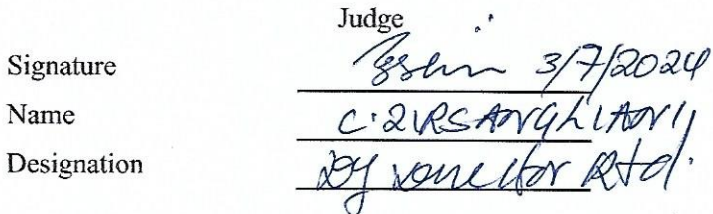 Judge
Signature 3/7/2024
Name C. ZIRSANGLIANI
Designation Dy Director Rtd.